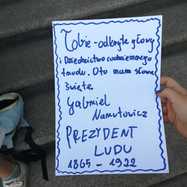 Tobie - odkryte głowy
i Dziedzictwo codziennego
trudu. Oto mam słowa
święte
Gabriel
Narutowicz
PREZYDENT
LUDU
1865 - 1922